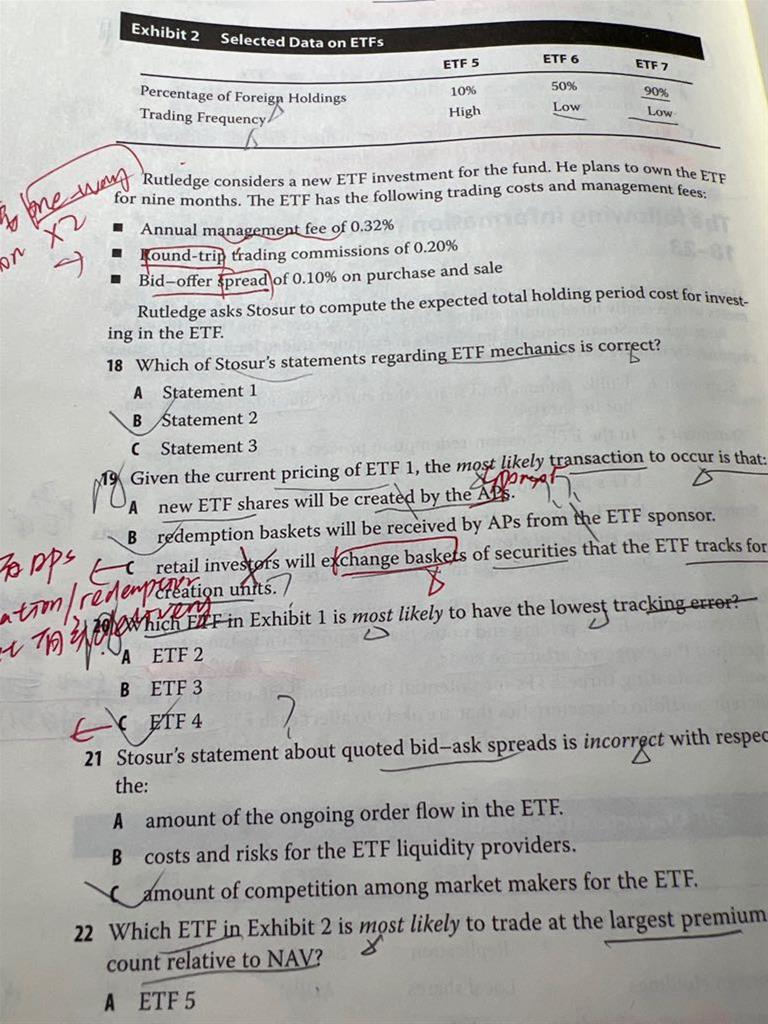 Exhibit 2 Selected Data on ETFs
ETF 5 ETF 6 ETF 7
Percentage of Foreign Holdings 10% 50% 90%
Trading Frequency High Low Low
one-way
×2
Rutledge considers a new ETF investment for the fund. He plans to own the ETF
for nine months. The ETF has the following trading costs and management fees:
■ Annual management fee of 0.32%
■ Round-trip trading commissions of 0.20%
■ Bid–offer spread of 0.10% on purchase and sale
Rutledge asks Stosur to compute the expected total holding period cost for invest-
ing in the ETF.
18 Which of Stosur's statements regarding ETF mechanics is correct?
A Statement 1
B Statement 2
C Statement 3
19 Given the current pricing of ETF 1, the most likely transaction to occur is that:
A new ETF shares will be created by the APs.
B redemption baskets will be received by APs from the ETF sponsor.
C retail investors will exchange baskets of securities that the ETF tracks for
creation units.
20 Which ETF in Exhibit 1 is most likely to have the lowest tracking error?
A ETF 2
B ETF 3
C ETF 4
21 Stosur's statement about quoted bid–ask spreads is incorrect with respec
the:
A amount of the ongoing order flow in the ETF.
B costs and risks for the ETF liquidity providers.
C amount of competition among market makers for the ETF.
22 Which ETF in Exhibit 2 is most likely to trade at the largest premium
count relative to NAV?
A ETF 5